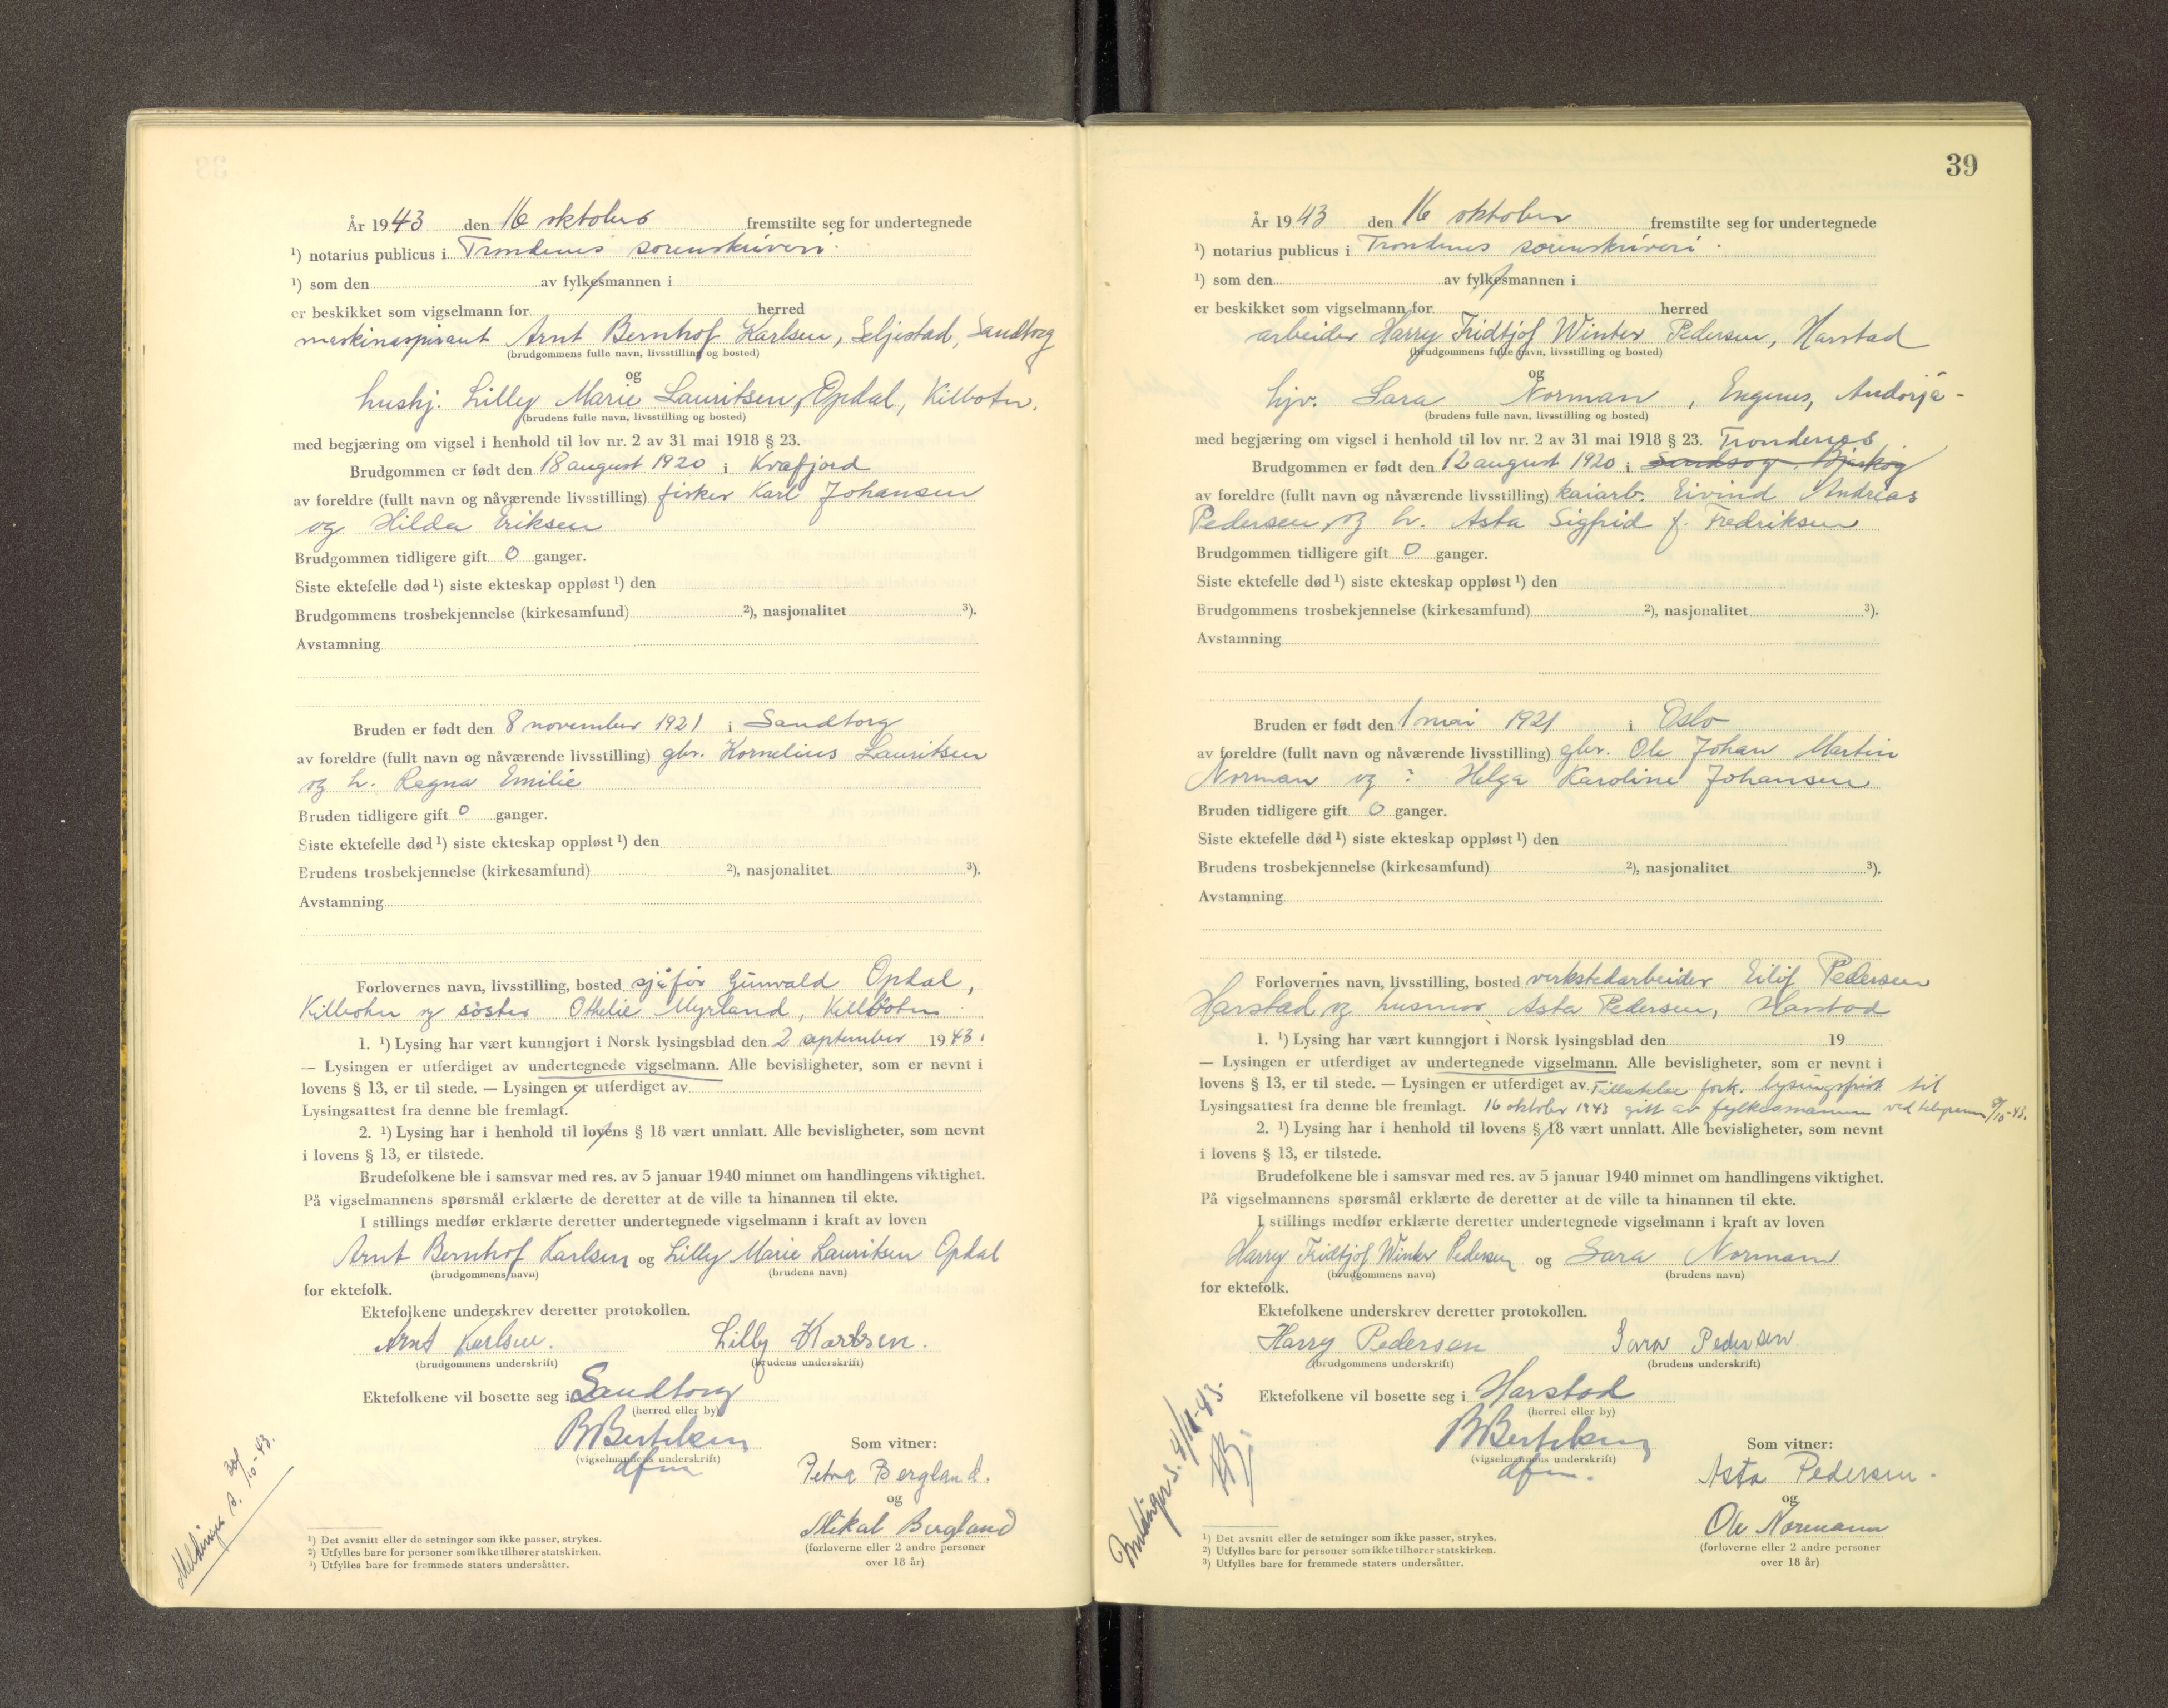 År 1943 den 16 oktober fremstilte seg for undertegnede
¹) notarius publicus i Trondenes sorenskriveri.
¹) som den av fylkesmannen i
er beskikket som vigselmann for herred
maskinaspirant Arnt Bernhof Karlsen, Seljestad, Sandtorg
(brudgommens fulle navn, livsstilling og bosted)
og
hushj. Lilly Marie Lauritsen, Opdal, Kilbotn.
(brudens fulle navn, livsstilling og bosted)
med begjæring om vigsel i henhold til lov nr. 2 av 31 mai 1918 § 23.
Brudgommen er født den 18 august 1920 i Kvæfjord
av foreldre (fullt navn og nåværende livsstilling) fisker Karl Johansen
og Hilda Eriksen
Brudgommen tidligere gift 0 ganger.
Siste ektefelle død ¹) siste ekteskap oppløst ¹) den
Brudgommens trosbekjennelse (kirkesamfund) ²), nasjonalitet ³).
Avstamning
Bruden er født den 8 november 1921 i Sandtorg
av foreldre (fullt navn og nåværende livsstilling) gbr. Kornelius Lauritsen
og h. Ragna Emilie
Bruden tidligere gift 0 ganger.
Siste ektefelle død ¹) siste ekteskap oppløst ¹) den
Brudens trosbekjennelse (kirkesamfund) ²), nasjonalitet ³).
Avstamning
Forlovernes navn, livsstilling, bosted sjåfør Gunvald Opdal,
Kilbotn og søster Othelie Myrland, Killbotn
1. ¹) Lysing har vært kunngjort i Norsk lysingsblad den 2 september 1943.
— Lysingen er utferdiget av undertegnede vigselmann. Alle bevisligheter, som er nevnt i
lovens § 13, er til stede. — Lysingen er utferdiget av
Lysingsattest fra denne ble fremlagt.
2. ¹) Lysing har i henhold til lovens § 18 vært unnlatt. Alle bevisligheter, som nevnt
i lovens § 13, er tilstede.
Brudefolkene ble i samsvar med res. av 5 januar 1940 minnet om handlingens viktighet.
På vigselmannens spørsmål erklærte de deretter at de ville ta hinannen til ekte.
I stillings medfør erklærte deretter undertegnede vigselmann i kraft av loven
Arnt Bernhof Karlsen og Lilly Marie Lauritsen Opdal
(brudgommens navn) (brudens navn)
for ektefolk.
Ektefolkene underskrev deretter protokollen.
Arnt Karlsen. Lilly Karlsen.
(brudgommens underskrift) (brudens underskrift)
Ektefolkene vil bosette seg i Sandtorg
(herred eller by)
B Bertelsen
(vigselmannens underskrift)
dfm
Som vitner:
Petra Bergland.
og
Mikal Bergland
(forloverne eller 2 andre personer
over 18 år)
Meldinger s. 30/10-43.
¹) Det avsnitt eller de setninger som ikke passer, strykes.
²) Utfylles bare for personer som ikke tilhører statskirken.
³) Utfylles bare for fremmede staters undersåtter.
39
År 1943 den 16 oktober fremstilte seg for undertegnede
¹) notarius publicus i Trondenes sorenskriveri.
¹) som den av fylkesmannen i
er beskikket som vigselmann for herred
arbeider Harry Fridtjof Winter Pedersen, Harstad
(brudgommens fulle navn, livsstilling og bosted)
og
hjv. Sara Norman, Engenes, Andørja-
(brudens fulle navn, livsstilling og bosted)
med begjæring om vigsel i henhold til lov nr. 2 av 31 mai 1918 § 23. Trondenes
Brudgommen er født den 12 august 1920 i Sandsøy, Bjarkøy
av foreldre (fullt navn og nåværende livsstilling) kaiarb. Eivind Andreas
Pedersen og h. Asta Sigfrid f. Fredriksen
Brudgommen tidligere gift 0 ganger.
Siste ektefelle død ¹) siste ekteskap oppløst ¹) den
Brudgommens trosbekjennelse (kirkesamfund) ²), nasjonalitet ³).
Avstamning
Bruden er født den 1 mai 1921 i Oslo
av foreldre (fullt navn og nåværende livsstilling) gbr. Ole Johan Martin
Norman og ? Helga Karoline Johansen
Bruden tidligere gift 0 ganger.
Siste ektefelle død ¹) siste ekteskap oppløst ¹) den
Brudens trosbekjennelse (kirkesamfund) ²), nasjonalitet ³).
Avstamning
Forlovernes navn, livsstilling, bosted verkstedarbeider Eilif Pedersen
Harstad og husmor Asta Pedersen, Harstad
1. ¹) Lysing har vært kunngjort i Norsk lysingsblad den 19
— Lysingen er utferdiget av undertegnede vigselmann. Alle bevisligheter, som er nevnt i
lovens § 13, er til stede. — Lysingen er utferdiget av Tillatelse fork. lysingsfrist til
Lysingsattest fra denne ble fremlagt. 16 oktober 1943 gitt av fylkesmannen ved telegram 9/10-43.
2. ¹) Lysing har i henhold til lovens § 18 vært unnlatt. Alle bevisligheter, som nevnt
i lovens § 13, er tilstede.
Brudefolkene ble i samsvar med res. av 5 januar 1940 minnet om handlingens viktighet.
På vigselmannens spørsmål erklærte de deretter at de ville ta hinannen til ekte.
I stillings medfør erklærte deretter undertegnede vigselmann i kraft av loven
Harry Fridtjof Winter Pedersen og Sara Norman
(brudgommens navn) (brudens navn)
for ektefolk.
Ektefolkene underskrev deretter protokollen.
Harry Pedersen Sara Pedersen
(brudgommens underskrift) (brudens underskrift)
Ektefolkene vil bosette seg i Harstad
(herred eller by)
B Bertelsen
(vigselmannens underskrift)
dfm.
Som vitner:
Asta Pedersen.
og
Ole Normann
(forloverne eller 2 andre personer
over 18 år)
Meldinger s.
¹) Det avsnitt eller de setninger som ikke passer, strykes.
²) Utfylles bare for personer som ikke tilhører statskirken.
³) Utfylles bare for fremmede staters undersåtter.